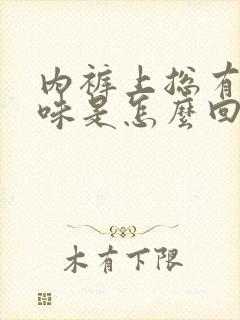 内裤上总有
味是怎麼回
木有下限